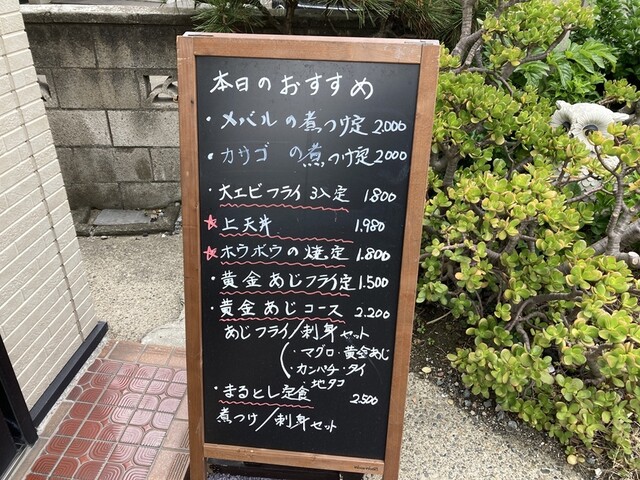 本日のおすすめ
・メバルの煮つけ定 2.000
・カサゴ の煮つけ定 2000
・大エビフライ 3入定 1.800
☆上天丼 1.980
☆ホウボウの焼定 1.800
・黄金あじフライ定 1.500
・黄金あじコース 2.200
あじフライ/刺身セット
(・マグロ・黄金あじ
・カンパチ・タイ
地タコ
・まるとし定食 2500
煮つけ/刺身セット